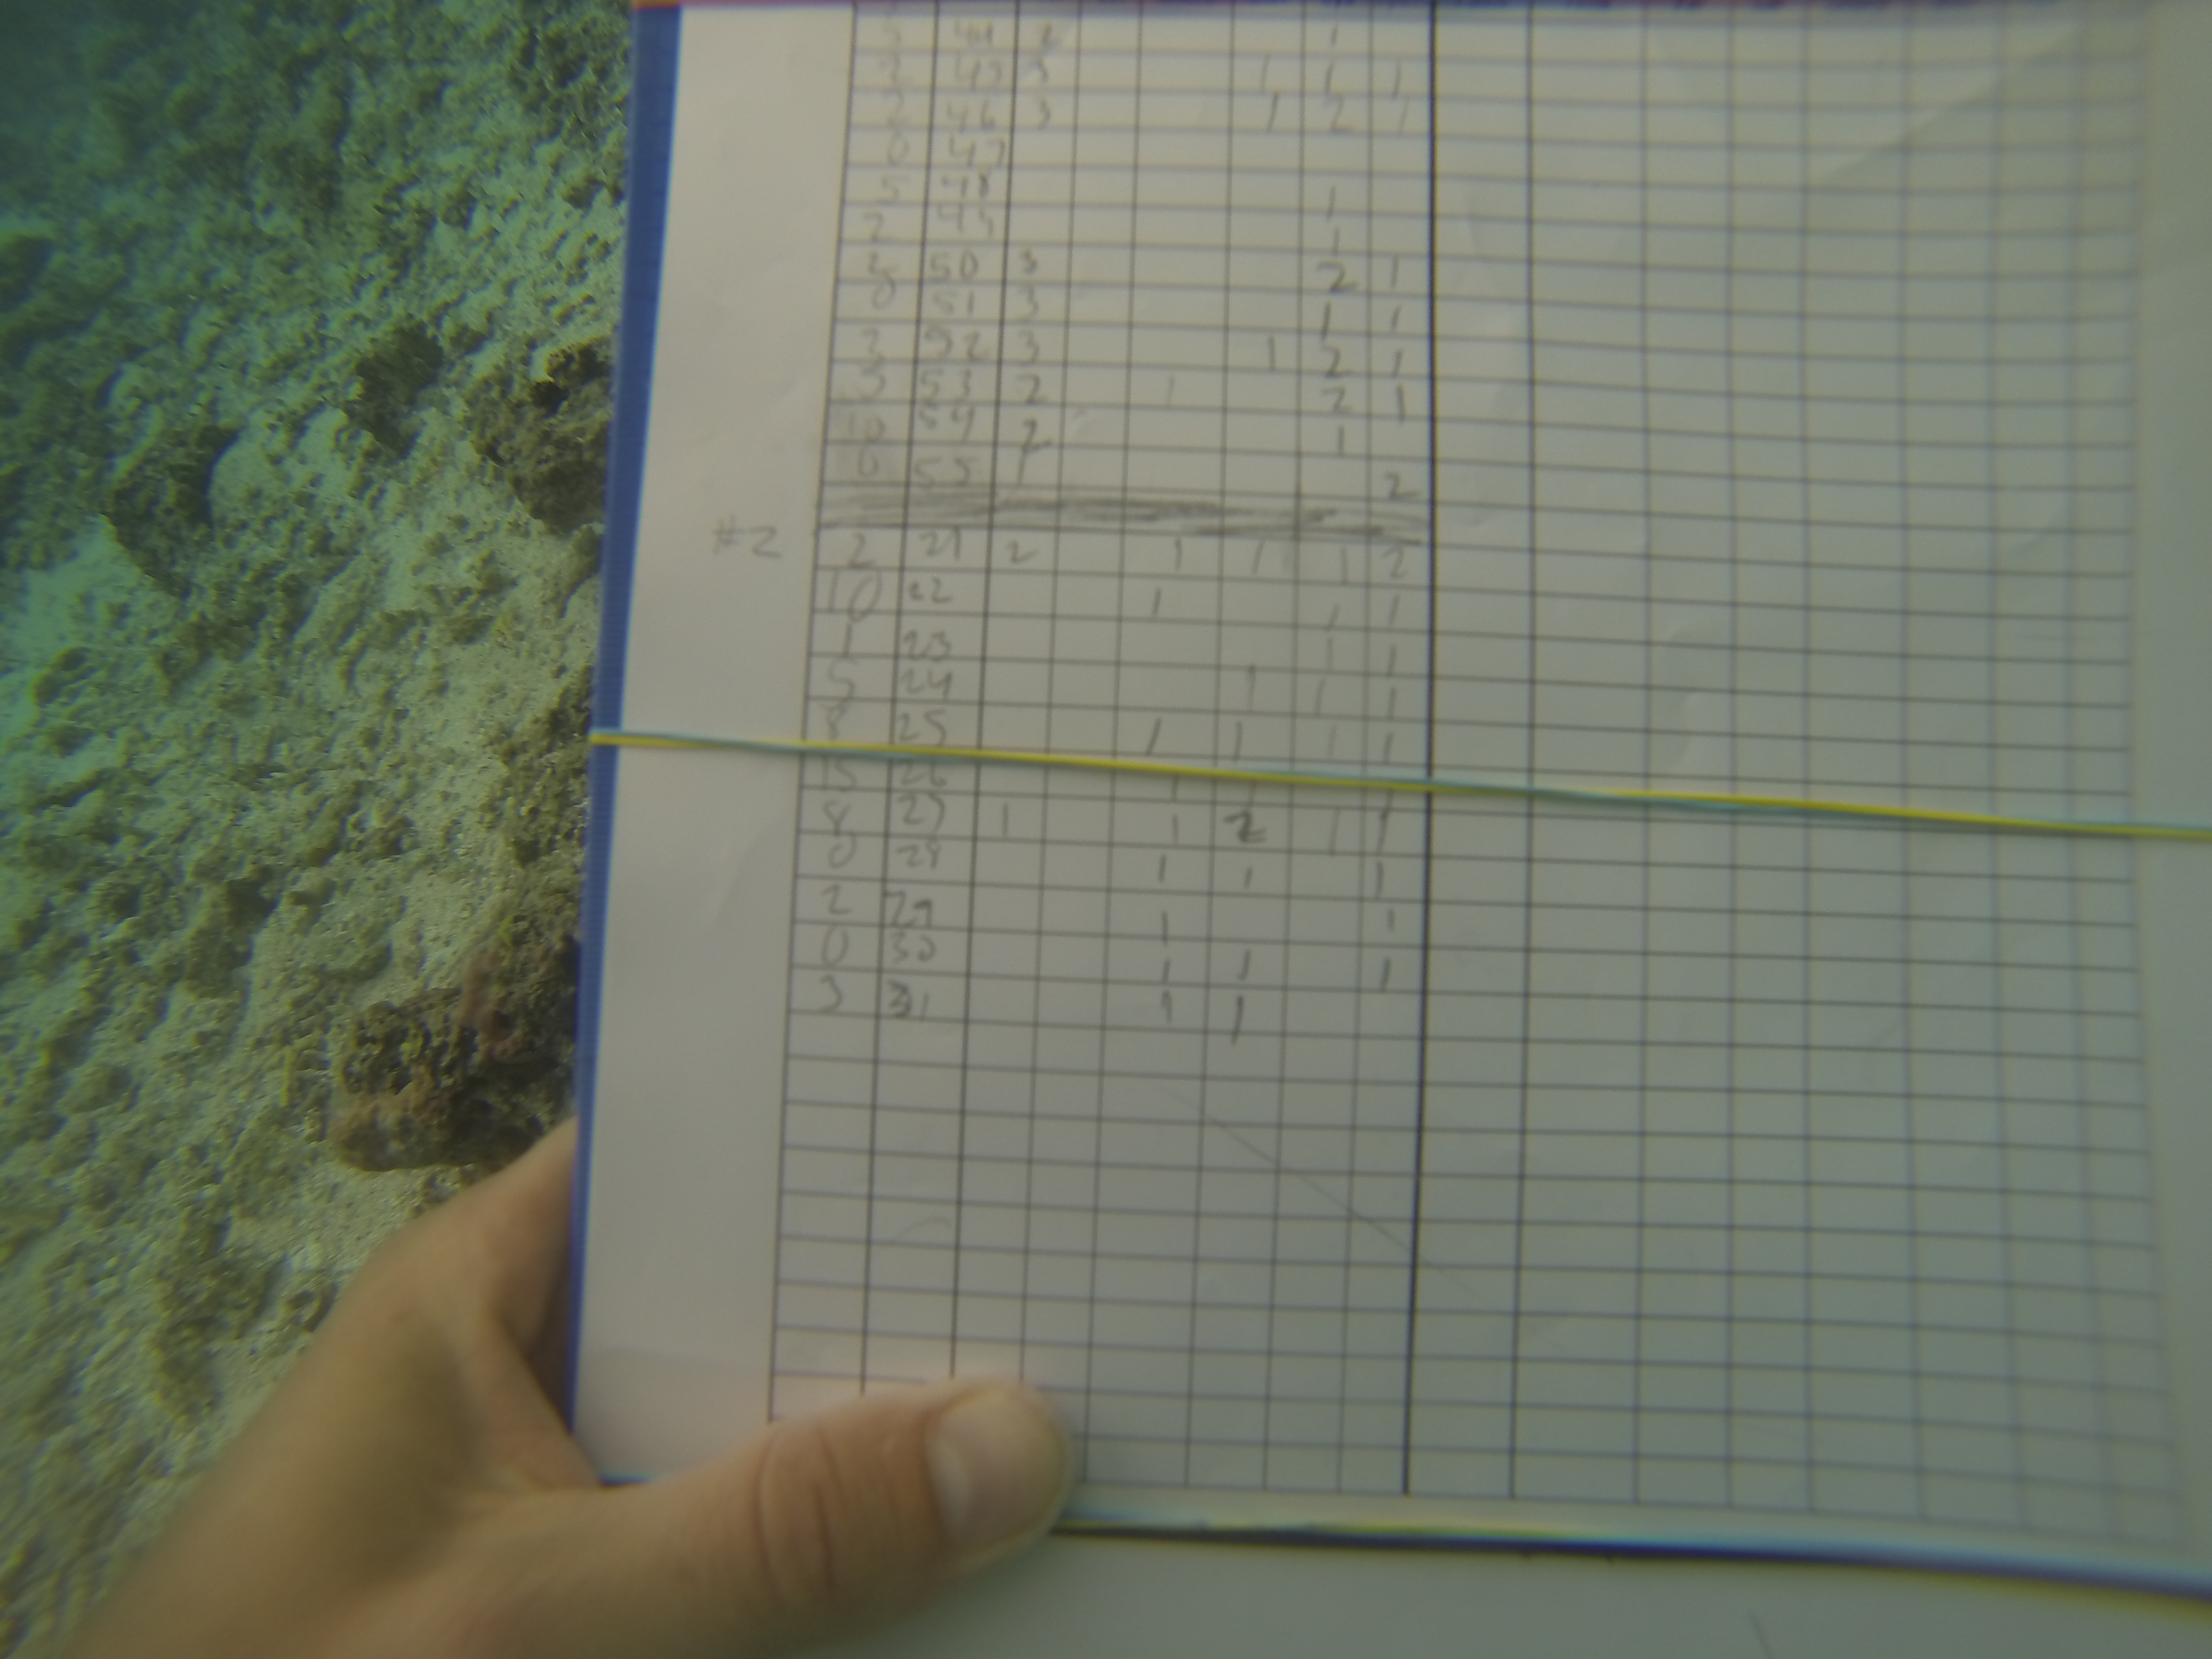 5 44 2 1
2 45 3 1 1 1
2 46 3 1 2 1
0 47
5 48 1
2 49 1
50 3 2 1
0 51 3 1 1
3 52 3 1 2 1
3 53 2 1 2 1
10 54 2 1
0 55 1 2
#2 2 21 2 1 1 1 2
10 22 1 1 1
1 23 1 1
5 24 1 1 1
8 25 1 1 1 1
15 26 1 1 1
8 27 1 1 2 1 1
0 28 1 1 1
2 29 1 1
0 30 1 1 1
3 31 1 1